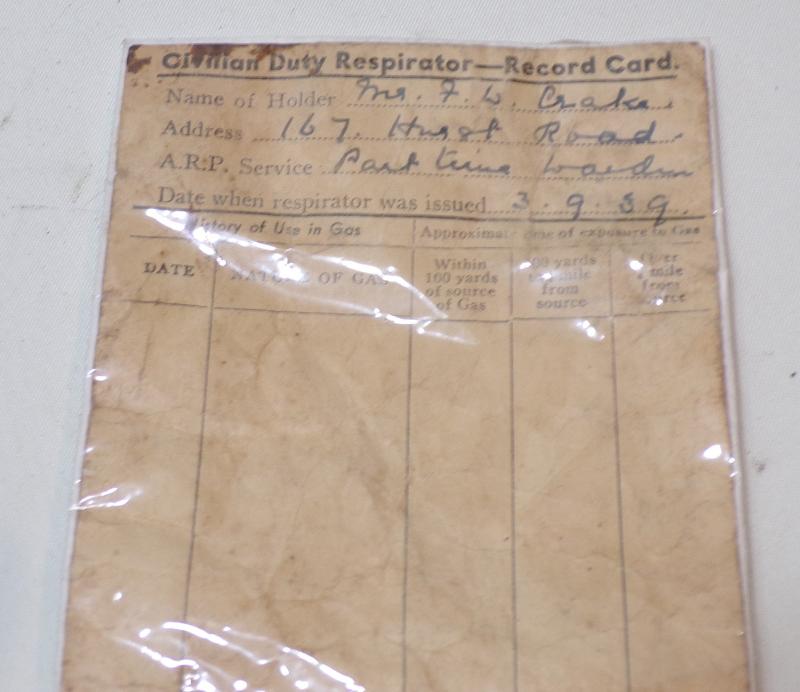 Civilian Duty Respirator—Record Card.
Name of Holder Mr. F. W. Crake.
Address 167. Hurst Road.
A.R.P. Service Part time Warden
Date when respirator was issued 3.9.39.
History of Use in Gas Approximate time of exposure to Gas
DATE NATURE OF GAS
Within 100 yards of source of Gas
100 yards to ½ mile from source
Over ½ mile from source